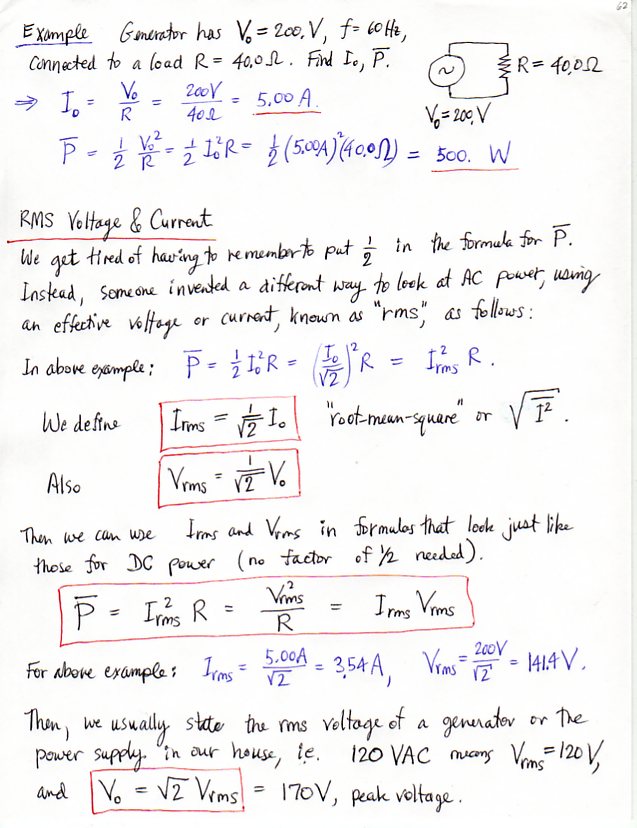 62
Example Generator has V₀ = 200. V, f = 60 Hz,
connected to a load R = 40.0 Ω. Find I₀, P̅.
R = 40.0 Ω
V₀ = 200. V
⇒ I₀ = V₀/R = 200V/40Ω = 5.00 A.
P̅ = 1/2 V₀²/R = 1/2 I₀² R = 1/2 (5.00A)² (40.0Ω) = 500. W
RMS Voltage & Current
We get tired of having to remember to put 1/2 in the formula for P̅.
Instead, someone invented a different way to look at AC power, using
an effective voltage or current, known as "rms", as follows:
In above example: P̅ = 1/2 I₀² R = (I₀/√2)² R = I²rms R.
We define Irms = 1/√2 I₀ "root-mean-square" or √I̅²̅.
Also Vrms = 1/√2 V₀
Then we can use Irms and Vrms in formulas that look just like
those for DC power (no factor of 1/2 needed).
P̅ = I²rms R = V²rms/R = Irms Vrms
For above example: Irms = 5.00A/√2 = 3.54 A, Vrms = 200V/√2 = 141.4 V.
Then, we usually state the rms voltage of a generator or the
power supply in our house, i.e. 120 VAC means Vrms = 120 V,
and V₀ = √2 Vrms = 170 V, peak voltage.